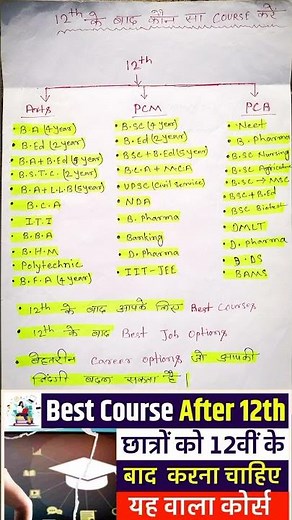 12th के बाद कौन सा COURSE करें
12th
Arts
B.A (4 year)
B.Ed (2 year)
B.A + B.Ed (4 year)
B.S.T.C. (2 year)
B.A + L.L.B (5 year)
B.C.A
I.T.I
B.B.A
B.H.M
Polytechnic
B.F.A (4 year)
PCM
B.SC (4 year)
B.Ed (2 year)
BSC + B.Ed (5 year)
B.C.A + M.C.A
UPSC (Civil service)
NDA
B. Pharma
Banking
D. Pharma
IIT-JEE
PCB
Neet
B. Pharma
B.SC Nursing
B.SC Agriculture
B.SC → MSC
BSC + B.Ed
BSC Biotech
DMLT
D. Pharma
B.DS
BAMS
12th के बाद आपके लिए Best Courses
12th के बाद Best Job Options
बेहतरीन Career options जो आपकी
जिंदगी बदल सकता है।
Best Course After 12th
छात्रों को 12वीं के
बाद करना चाहिए
यह वाला कोर्स